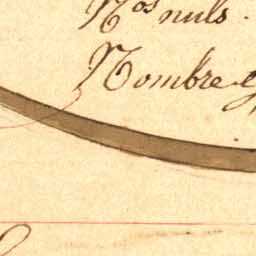 Nos nuls.
Nombre